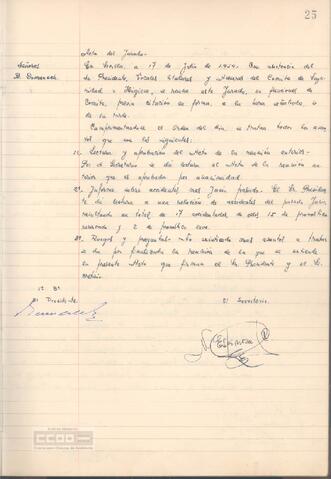 25
Acta del Jurado.-
Señores
En Sevilla, a 17 de Julio de 1964. Con asistencia del
Sr. Presidente, Vocales titulares y miembros del Comite de Segu-
ridad e Higiene, se reune este Jurado, en funciones de
Comite, previa citación en forma, a la hora señalada, 
de la tarde.
Cumplimentandose el Orden del dia, se tratan todos los asun-
tos que son los siguientes:
1º. Lectura y aprobación del Acta de la reunión anterior.-
Por el Secretario se dió lectura al Acta de la reunión an-
terior que es aprobada por unanimidad.
2º. Informe sobre accidentes mes Junio pasado. El Sr. Preside-
nte dió lectura a una relación de accidentes del pasado Junio,
resultando un total de 17 accidentados, de ellos 15 de pronostico
reservado y 2 de pronostico leve.
3º. Ruegos y preguntas.- No existiendo más asuntos a tratar
se da por finalizada la reunión de la que se extiende
la presente Acta que firman el Sr. Presidente y el Se-
cretario.
Vº Bº
El Presidente
El Secretario.
CCOO